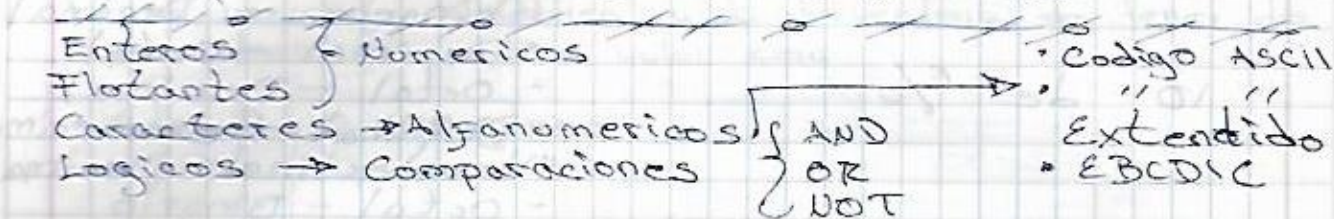 Enteros } Numericos
Flotantes
Caracteres → Alfanumericos
Logicos → Comparaciones { AND
OR
NOT
• Codigo ASCII
• " "
Extendido
• EBCDIC